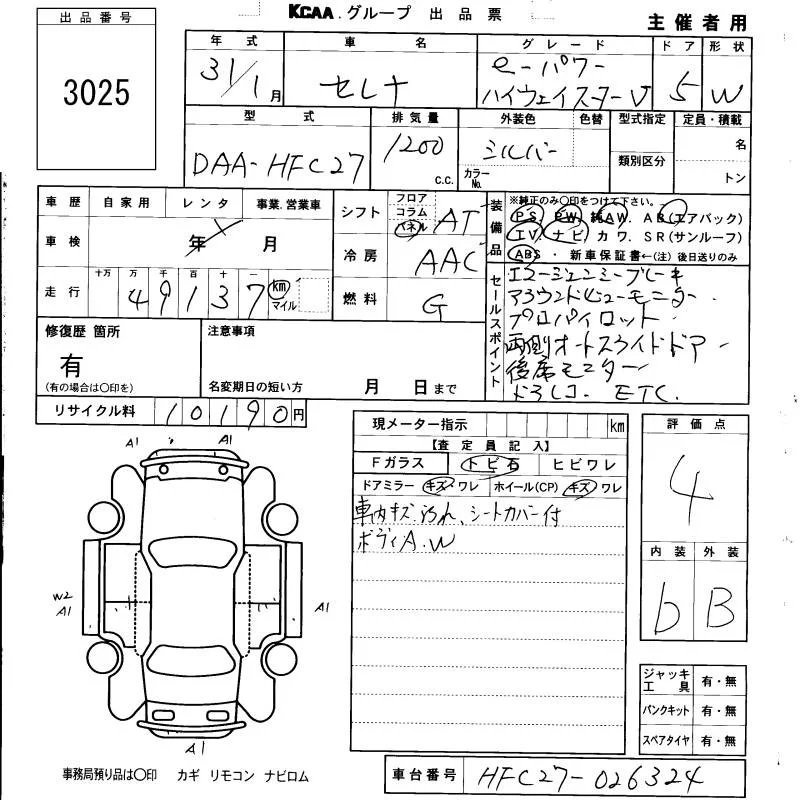 KCAA.グループ 出品票
主催者用
出品番号
3025
年式 車名 グレード ドア 形状
31/1月 セレナ e-パワー ハイウェイスターV 5 W
型式 排気量 外装色 色替 型式指定 定員・積載
DAA-HFC27 1200 c.c. シルバー カラーNo. 類別区分 名 トン
車歴 自家用 レンタ 事業.営業車
車検 年 月
走行 十万 万 千 百 十 一
49137 km マイル
シフト フロア コラム パネル AT
冷房 AAC
燃料 G
装備品 ※純正のみ〇印をつけて下さい。
PS. PW. 純AW. AB(エアバック)
TV. ナビ カワ. SR(サンルーフ)
ABS・新車保証書←(注)後日送りのみ
セールスポイント
エマージェンシーブレーキ
アラウンドビューモニター
プロパイロット
両側オートスライドドア
後席モニター
ドラレコ. ETC.
修復歴 箇所
有
(有の場合は〇印を)
注意事項
名変期日の短い方 月 日まで
リサイクル料 10190円
現メーター指示 km
【査定員記入】
Fガラス トビ石 ヒビワレ
ドアミラー キズ・ワレ ホイール(CP) キズ ワレ
車内キズ.汚れ、シートカバー付
ボディA.W
評価点
4
内装 外装
b B
A1 A1
W2
A1
A1
A1
ジャッキ工具 有・無
パンクキット 有・無
スペアタイヤ 有・無
事務局預り品は〇印 カギ リモコン ナビロム
車台番号 HFC27-026324